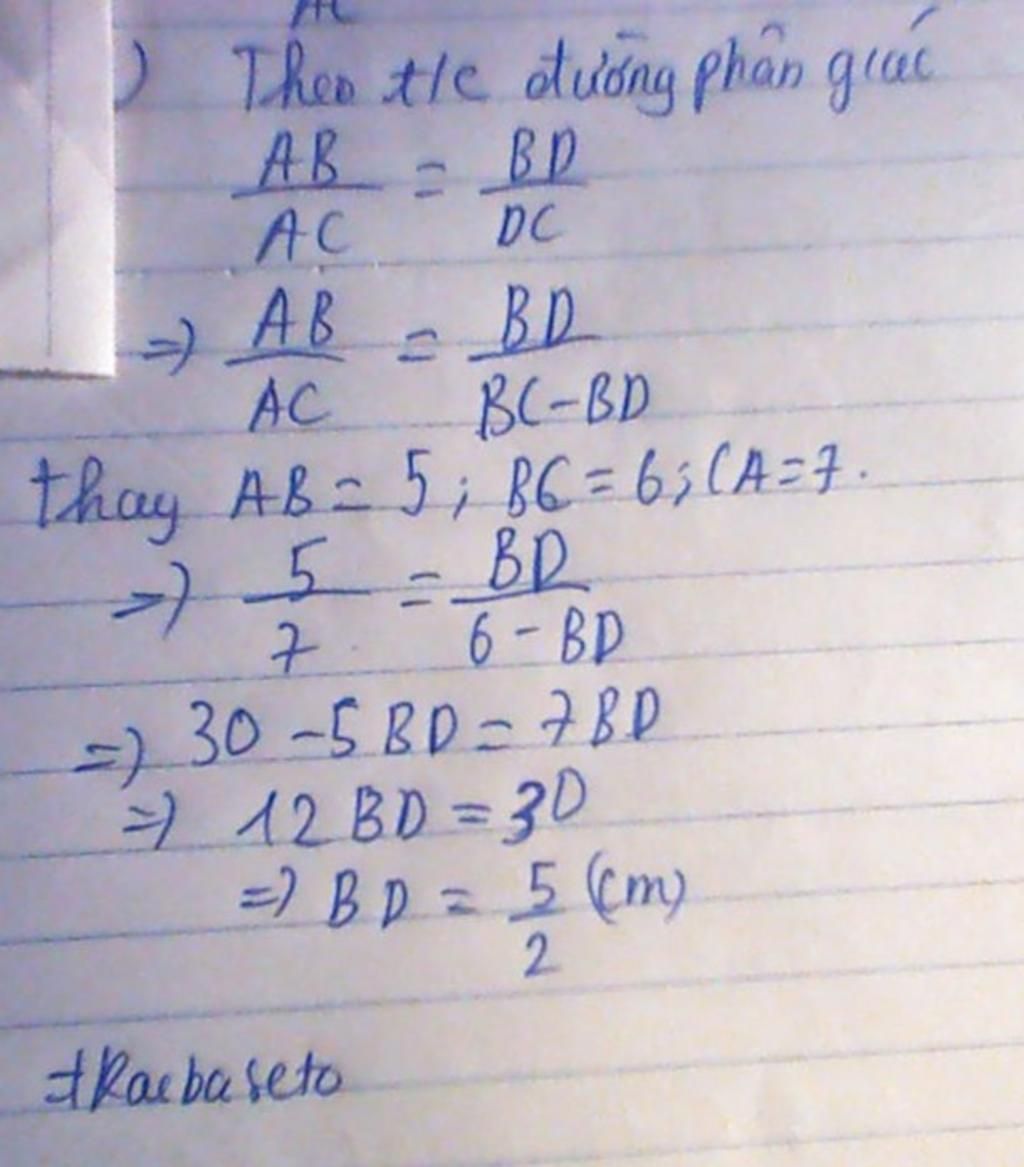 AC
) Theo t/c đường phân giác
AB/AC = BD/DC
=> AB/AC = BD/BC-BD
thay AB = 5; BC = 6; CA = 7.
=> 5/7 = BD/6-BD
=> 30 - 5BD = 7BD
=> 12BD = 30
=> BD = 5/2 (cm)